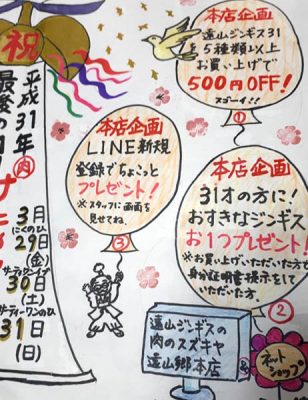 祝
平成31年㊙
最終の肉
3月
にくのひ
29日
(金)
サーティのひ
30日
(土)
サーティーワンのひ
31日
(日)
本店企画
遠山ジンギス31
を5種類以上
お買い上げで
500円OFF!
スゴーイ!!
①
本店企画
LINE新規
登録でちょこっと
プレゼント!
※スタッフに画面を
見せてね。
③
本店企画
31才の方に!
おすきなジンギス
お1つプレゼント!
※お買い上げいただいた方で
身分証明書提示をして
いただいた方。
②
遠山ジンギスの
肉のスズキヤ
遠山郷本店
ネット
ショップ